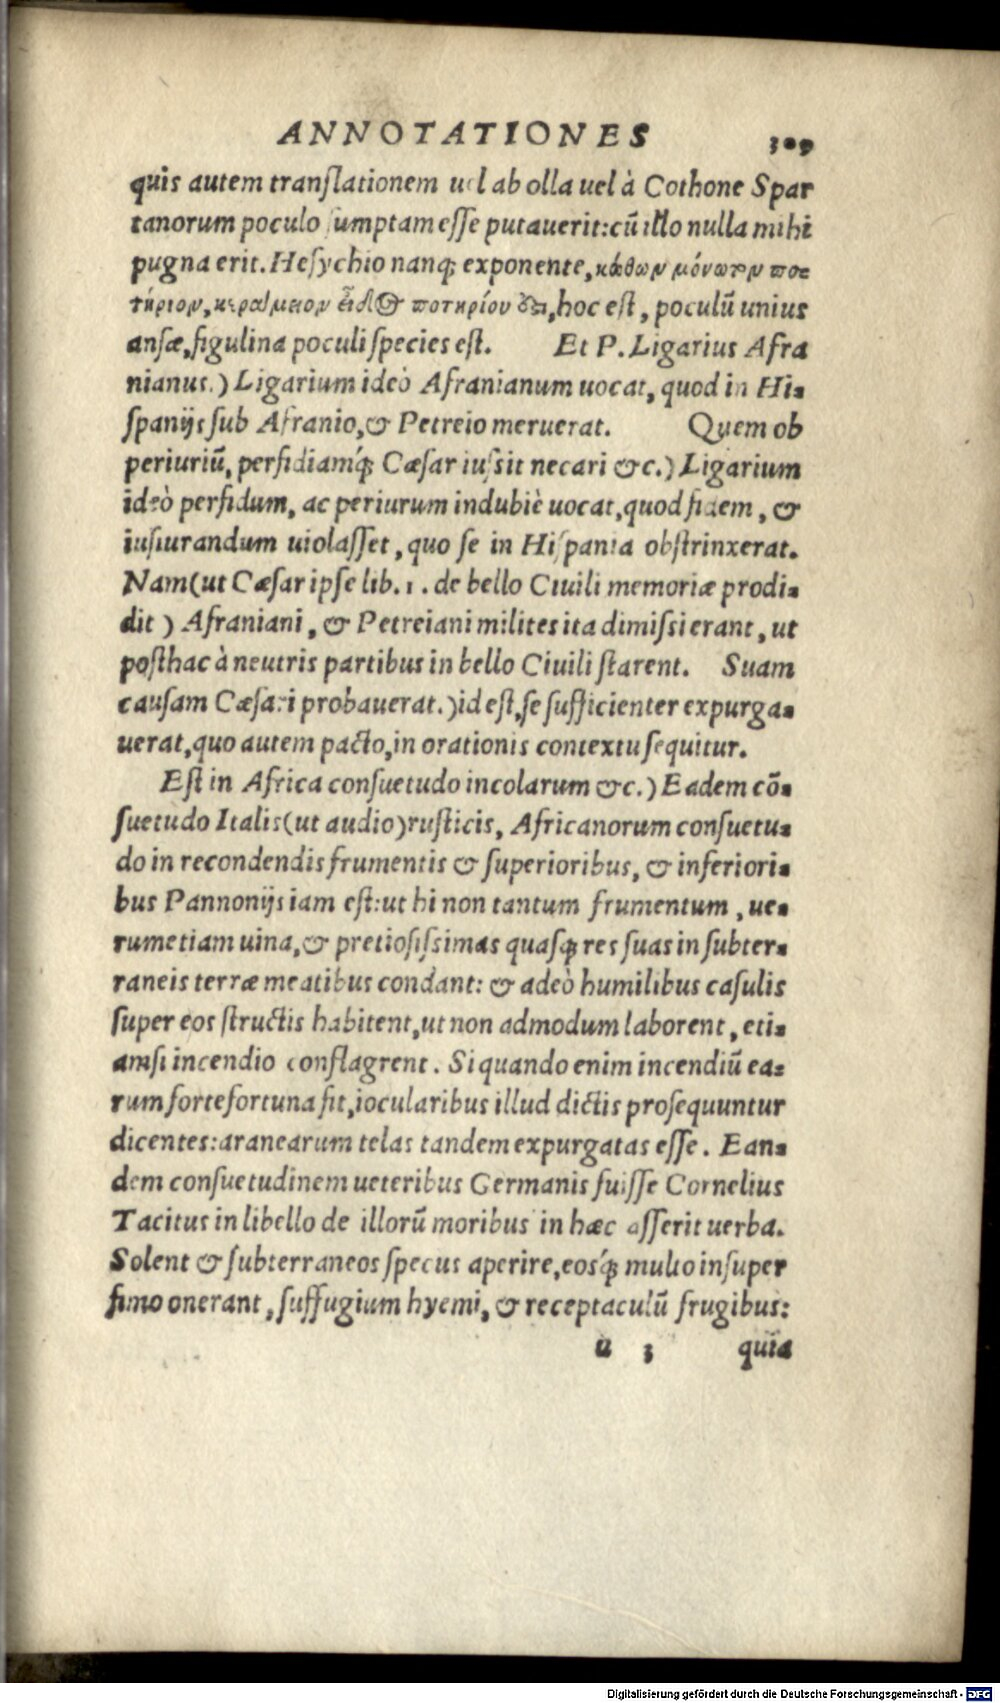 ANNOTATIONES 309
quis autem translationem uel ab olla uel à Cothone Spar
tanorum poculo sumptam esse putauerit: cū illo nulla mihi
pugna erit. Hesychio nanq; exponente, κώθων μόνωτον πο=
τήριον, κεραμειον
ποτηρίου
, hoc est, poculū unius
ansæ, figulina poculi species est. Et P. Ligarius Afra
nianus.) Ligarium ideò Afranianum uocat, quod in Hi=
spanijs sub Afranio, & Petreio meruerat. Quem ob
periuriū, perfidiamq́; Cæsar iussit necari &c.) Ligarium
ideò perfidum, ac periurum indubiè uocat, quod fidem, &
iusiurandum uiolasset, quo se in Hispania obstrinxerat.
Nam (ut Cæsar ipse lib. 1. de bello Ciuili memoriæ prodi=
dit) Afraniani, & Petreiani milites ita dimissi erant, ut
posthac à neutris partibus in bello Ciuili starent. Suam
causam Cæsari probauerat.) id est, se sufficienter expurga=
uerat, quo autem pacto, in orationis contextu sequitur.
Est in Africa consuetudo incolarum &c.) Eadem cō=
suetudo Italis (ut audio) rusticis, Africanorum consuetu=
do in recondendis frumentis & superioribus, & inferiori=
bus Pannonijs iam est: ut hi non tantum frumentum, ue=
rumetiam uina, & pretiosissimas quasq; res suas in subter=
raneis terræ meatibus condant: & adeò humilibus casulis
super eos structis habitent, ut non admodum laborent, eti=
amsi incendio conflagrent. Si quando enim incendiū ea=
rum forte fortuna fit, iocularibus illud dictis prosequuntur
dicentes: aranearum telas tandem expurgatas esse. Ean=
dem consuetudinem ueteribus Germanis fuisse Cornelius
Tacitus in libello de illorū moribus in hæc asserit uerba.
Solent & subterraneos specus aperire, eosq́; multo insuper
fimo onerant, suffugium hyemi, & receptaculū frugibus:
u 3 quia
Digitalisierung gefördert durch die Deutsche Forschungsgemeinschaft - DFG